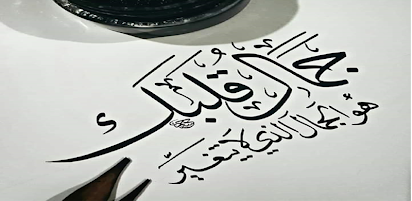 جمال قلبك
هو الجمال الذي لا يتغير